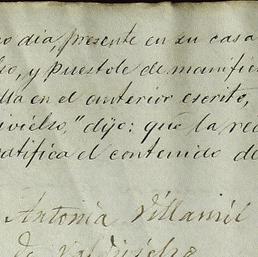 o dia, presente en su casa
lso, y puestole de manifies
lla en el anterior escrito,
ivielso," dijo: que la rec
ratifica el contenido de
Antonia Villamil
de Valdivielso